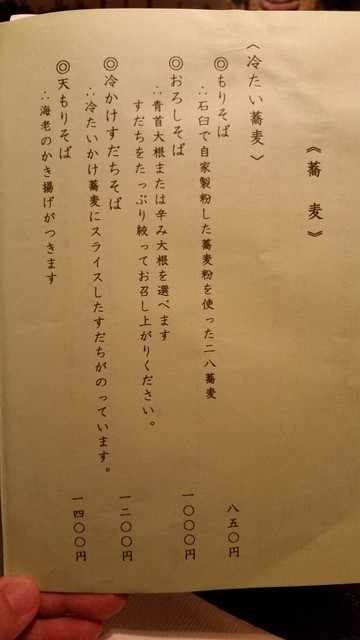 《蕎麦》
〈冷たい蕎麦〉
◎もりそば 八五〇円
∴石臼で自家製粉した蕎麦粉を使った二八蕎麦
◎おろしそば 一〇〇〇円
∴青首大根または辛み大根を選べます
すだちをたっぷり絞ってお召し上がりください。
◎冷かけすだちそば 一二〇〇円
∴冷たいかけ蕎麦にスライスしたすだちがのっています。
◎天もりそば 一四〇〇円
∴海老のかき揚げがつきます